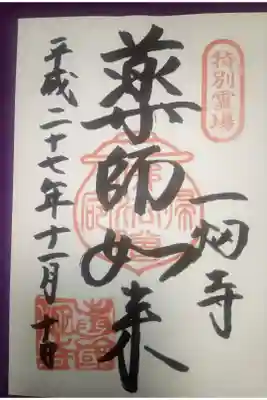 特別霊場
一畑寺
薬師如来
平成二十七年十一月十日